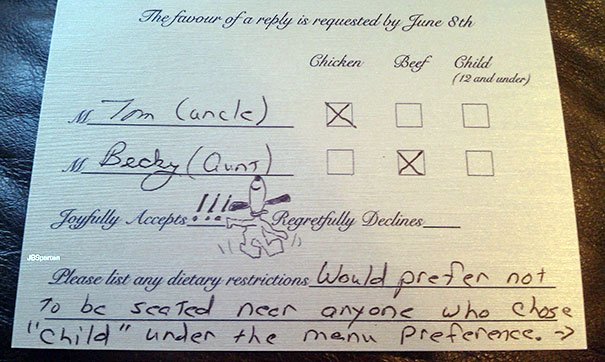 The favour of a reply is requested by June 8th
Chicken Beef Child
(12 and under)
M Tom (uncle)
M Becky (Aunt)
Joyfully Accepts !!! Regretfully Declines
JBSpartan
Please list any dietary restrictions Would prefer not
to be seated near anyone who chose
"child" under the menu preference. →